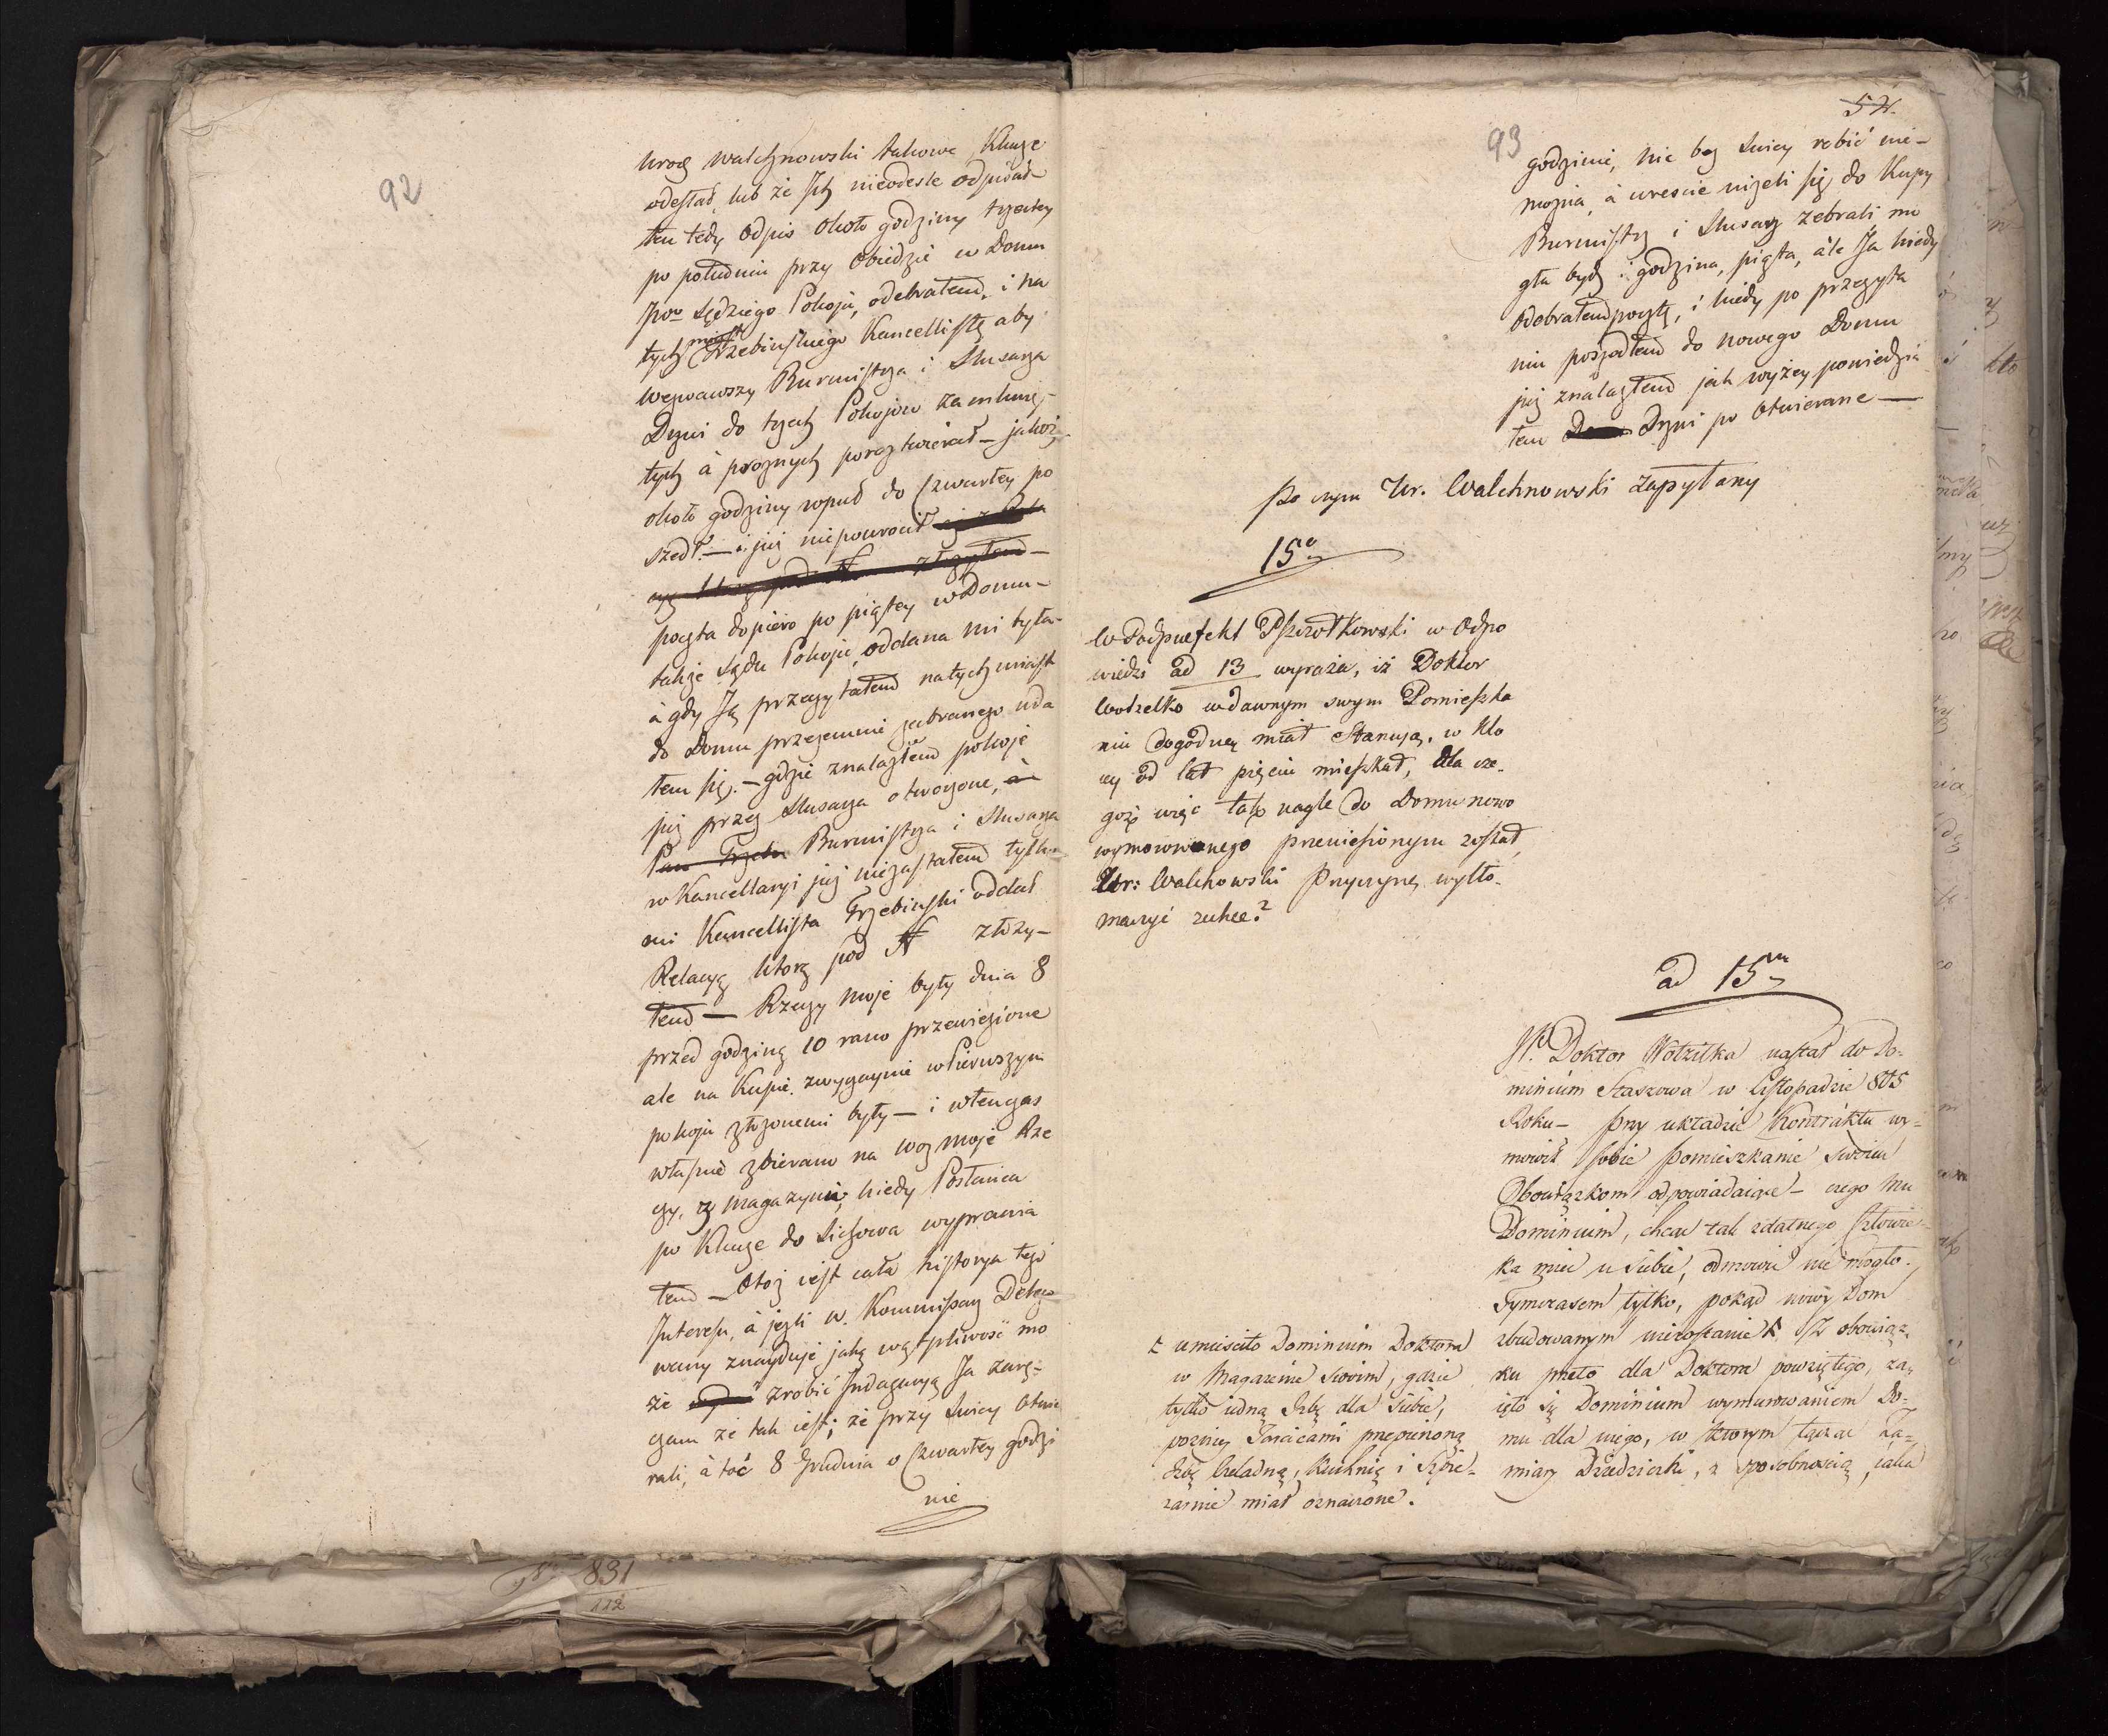 92
Urog Walchnowski takowe Klucze
odesłał, lub że Ich nieodeśle odpisał
ten tedy odpis około godziny trzeciey
po południu przy obiedzie w Domu
Pow Sędziego Pokoju, odebrałem, i na
tych miast Trzebińskiego Kancellistę aby
wezwawszy Burmistrza i Slusarza
Drzwi do trzech Pokojów zamknię-
tych à proznych porozt wierał – jakoż
około godziny wpuł do Czwartey po
szedł – i już niepowrocił
poczta dopiero po piątey w Domu
także Sądu Pokoju, oddana mi była
à gdy Ją przeczytałem natychmiast
do Domu przezemnie zabranego uda
łem się. – gdzie znalazłem pokoje
już przez Slusarza otworzone, à
Pan Trzebin Burmistrza i Slusarza
w Kancellaryi już niezastałem tylko
mi Kancellista Trzebiński oddał
Relacyą którą pod N złoży-
łem – Rzeczy moje były dnia 8
przed godziną 10 rano przewiezione
ale na Kupie zwyczaynie w Pierwszym
pokoju złożonemi były – i wtenczas
właśnie zbierano na woz moje Rze
czy z magazynu, kiedy Posłańca
po Klucze do Sichowa wyprawia
łem – Otoż iest cała historya tego
Interesu, à jeżli W. Kommissarz Delego
wany znayduje jaką wątpliwość mo
że zrobić Indagacyą Ja zarę-
czam że tak iest; że przy Swicy otwie
rali, à toć 8 Grudnia o Czwartey godzi
nie
831
112
52.
93
godzinie, nic bez Swicy robić nie-
można, à wreście nizeli się do Kupy
Burmistrz i Slusarz zebrali mo
gła bydź i godzina, piąta, ale Ja kiedy
odebrałem pocztę, i kiedy po przeczyta
niu poszedłem do nowego Domu
już znalazłem jak wyżey powiedzia
łem Drzwi po otwierane –
Po czym Ur. Walchnowski zapytany
15o
W Podprefekt Pszczołkowski w Odpo
wiedzi ad 13 wyraża, iż Doktor
Wodzelko w dawnym swym Pomieszka
niu dogodną miał Stancyą, w kto
rey od lat pięciu mieszkał, dla cze-
goż więc tak nagle do Domu nowo
wymorowanego przeniesionym został,
Ur: Walchowski Przyczynę wytło-
maczyć zechce?
ad 15m
JP. Doktor Wotzilka nastał do Do-
minium Staszowa w Listopadzie 805
Roku – przy układzie Kontraktu wy-
mowił sobie pomieszkanie swoim
Obowiązkom odpowiadaiące – czego Mu
Dominium, chcąc tak zdatnego Człowie-
ka mieć u siebie, odmowić nie mogło.
Tymczasem tylko, pokąd nowy Dom
zbudowanym niezostanie Ł Z obowiąz-
ku przeto dla Doktora powziętego, za-
ięło się Dominium wymurowaniem Do-
mu dla niego, w którym łącząc Za-
miary Dziedziczki, z sposobnością, iaka
Ł umieściło Dominium Doktora
w Magazinie Swoim, gdzie
tylko iedną Izbę dla Siebie,
pozniey Tarcicami przepierzoną
Izbę Czeladną, Kuchnię i Spi-
żarnie miał oznaczone.